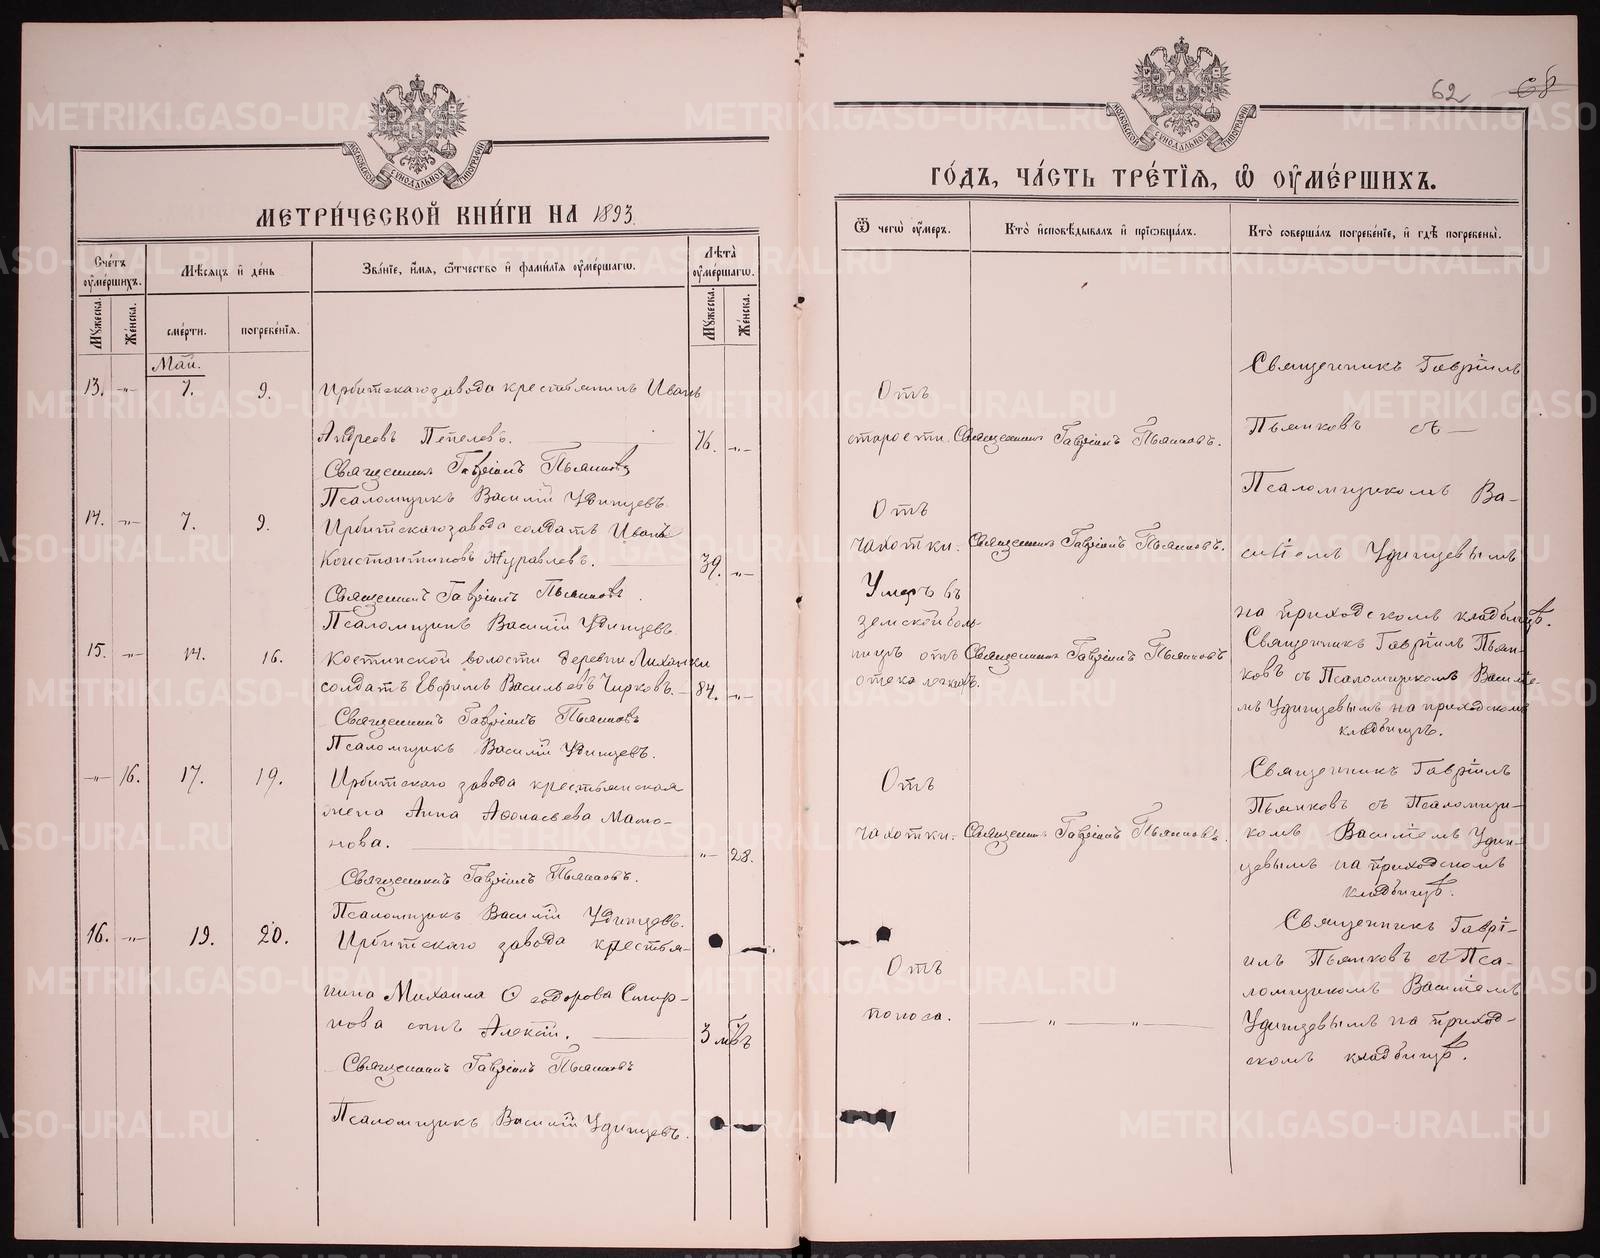 62 68
МЕТРИ́ЧЕСКОЙ КНИ́ГИ НА 1893
ГО́ДЪ, ЧА́СТЬ ТРЕ́ТІѦ, Ѡ ОУ҆МЕ́РШИХЪ.
Сче́тъ оу҆ме́ршихъ.
Мѣ́сѧцъ и҆ де́нь
Зва́нїе, и҆́мѧ, ѻ҆́тчество и҆ фами́лїѧ оу҆ме́ршагѡ.
Лѣ́та оу҆ме́ршагѡ.
Ѿ чегѡ̀ оу҆́меръ.
Кто̀ и҆сповѣ́дывалъ и҆ прїѡбща́лъ.
Кто̀ соверша́лъ погребе́нїе, и҆ гдѣ̀ погребены̀.
Мꙋ́жеска.
Же́нска.
сме́рти.
погребе́нїѧ.
Мꙋ́жеска.
Же́нска.
Май.
13. -"- 7. 9.
Ирбитскаго завода крестьянинъ Иванъ
Андреевъ Пепелевъ. 76. -"-
Священникъ Гавріилъ Пьянковъ
Псаломщикъ Василій Удинцевъ.
Отъ
старости.
Священникъ Гавріилъ Пьянковъ.
Священникъ Гавріилъ
Пьянковъ съ
Псаломщикомъ Ва-
силіемъ Удинцевымъ
на приходскомъ кладбищѣ.
14. -"- 7. 9.
Ирбитскаго завода солдатъ Иванъ
Константиновъ Журавлевъ. 39. -"-
Священникъ Гавріилъ Пьянковъ.
Псаломщикъ Василій Удинцевъ.
Отъ
чахотки.
Священникъ Гавріилъ Пьянковъ.
15. -"- 14. 16.
Костинской волости деревни
солдатъ Ефримъ Васильевъ Чирковъ. 84. -"-
Священникъ Гавріилъ Пьянковъ
Псаломщикъ Василій Удинцевъ.
Умеръ въ
земской боль-
ницѣ отъ
отека легкихъ.
Священникъ Гавріилъ Пьянковъ
Священникъ Гавріилъ Пьян-
ковъ съ Псаломщикомъ Василіе-
мъ Удинцевымъ на приходскомъ
кладбищѣ.
-"- 16. 17. 19.
Ирбитскаго завода крестьянская
жена Анна Афонасьева Мамо-
нова. -"- 28.
Священникъ Гавріилъ Пьянковъ.
Псаломщикъ Василій Удинцевъ.
Отъ
чахотки.
Священникъ Гавріилъ Пьянковъ.
Священникъ Гавріилъ
Пьянковъ съ Псаломщи-
комъ Василіемъ Удин-
цевымъ на приходскомъ
кладбищѣ.
16. -"- 19. 20.
Ирбитскаго завода крестья-
нина Михаила Ѳеодорова Смир-
нова сынъ Алексій. 3 мѣ-въ
Священникъ Гавріилъ Пьянковъ
Псаломщикъ Василій Удинцевъ.
Отъ
поноса.
" "
Священникъ Гаврі-
илъ Пьянковъ съ Пса-
ломщикомъ Василіемъ
Удинцевымъ на приход-
скомъ кладбищѣ.
METRIKI.GASO-URAL.RU